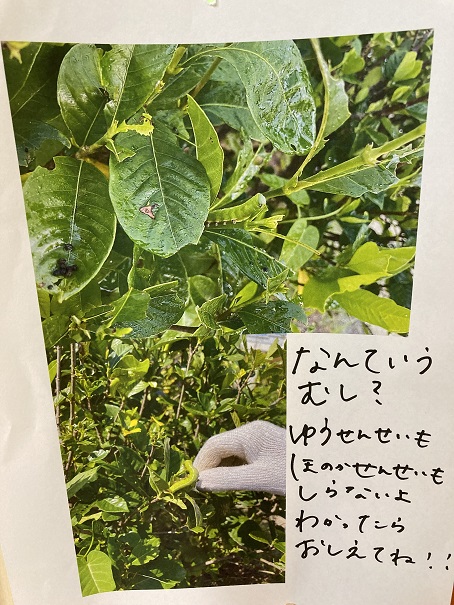 なんていう
むし?
ゆうせんせいも
ほのかせんせいも
しらないよ
わかったら
おしえてね!!